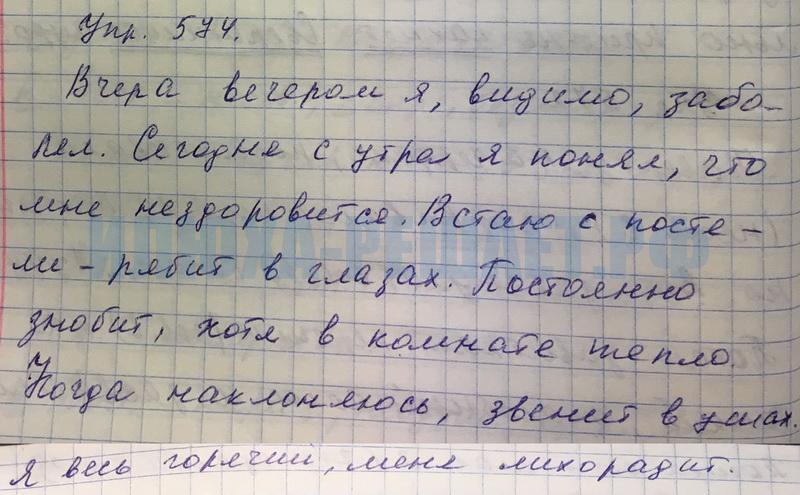 Упр. 574.
Вчера вечером я, видимо, забо-
лел. Сегодня с утра я понял, что
мне нездоровится. Встаю с посте-
ли - рябит в глазах. Постоянно
знобит, хотя в комнате тепло.
Когда наклоняюсь, звенит в ушах.
Я весь горячий, меня лихорадит.
ИЛЮХА-РЕШАЕТ.РФ